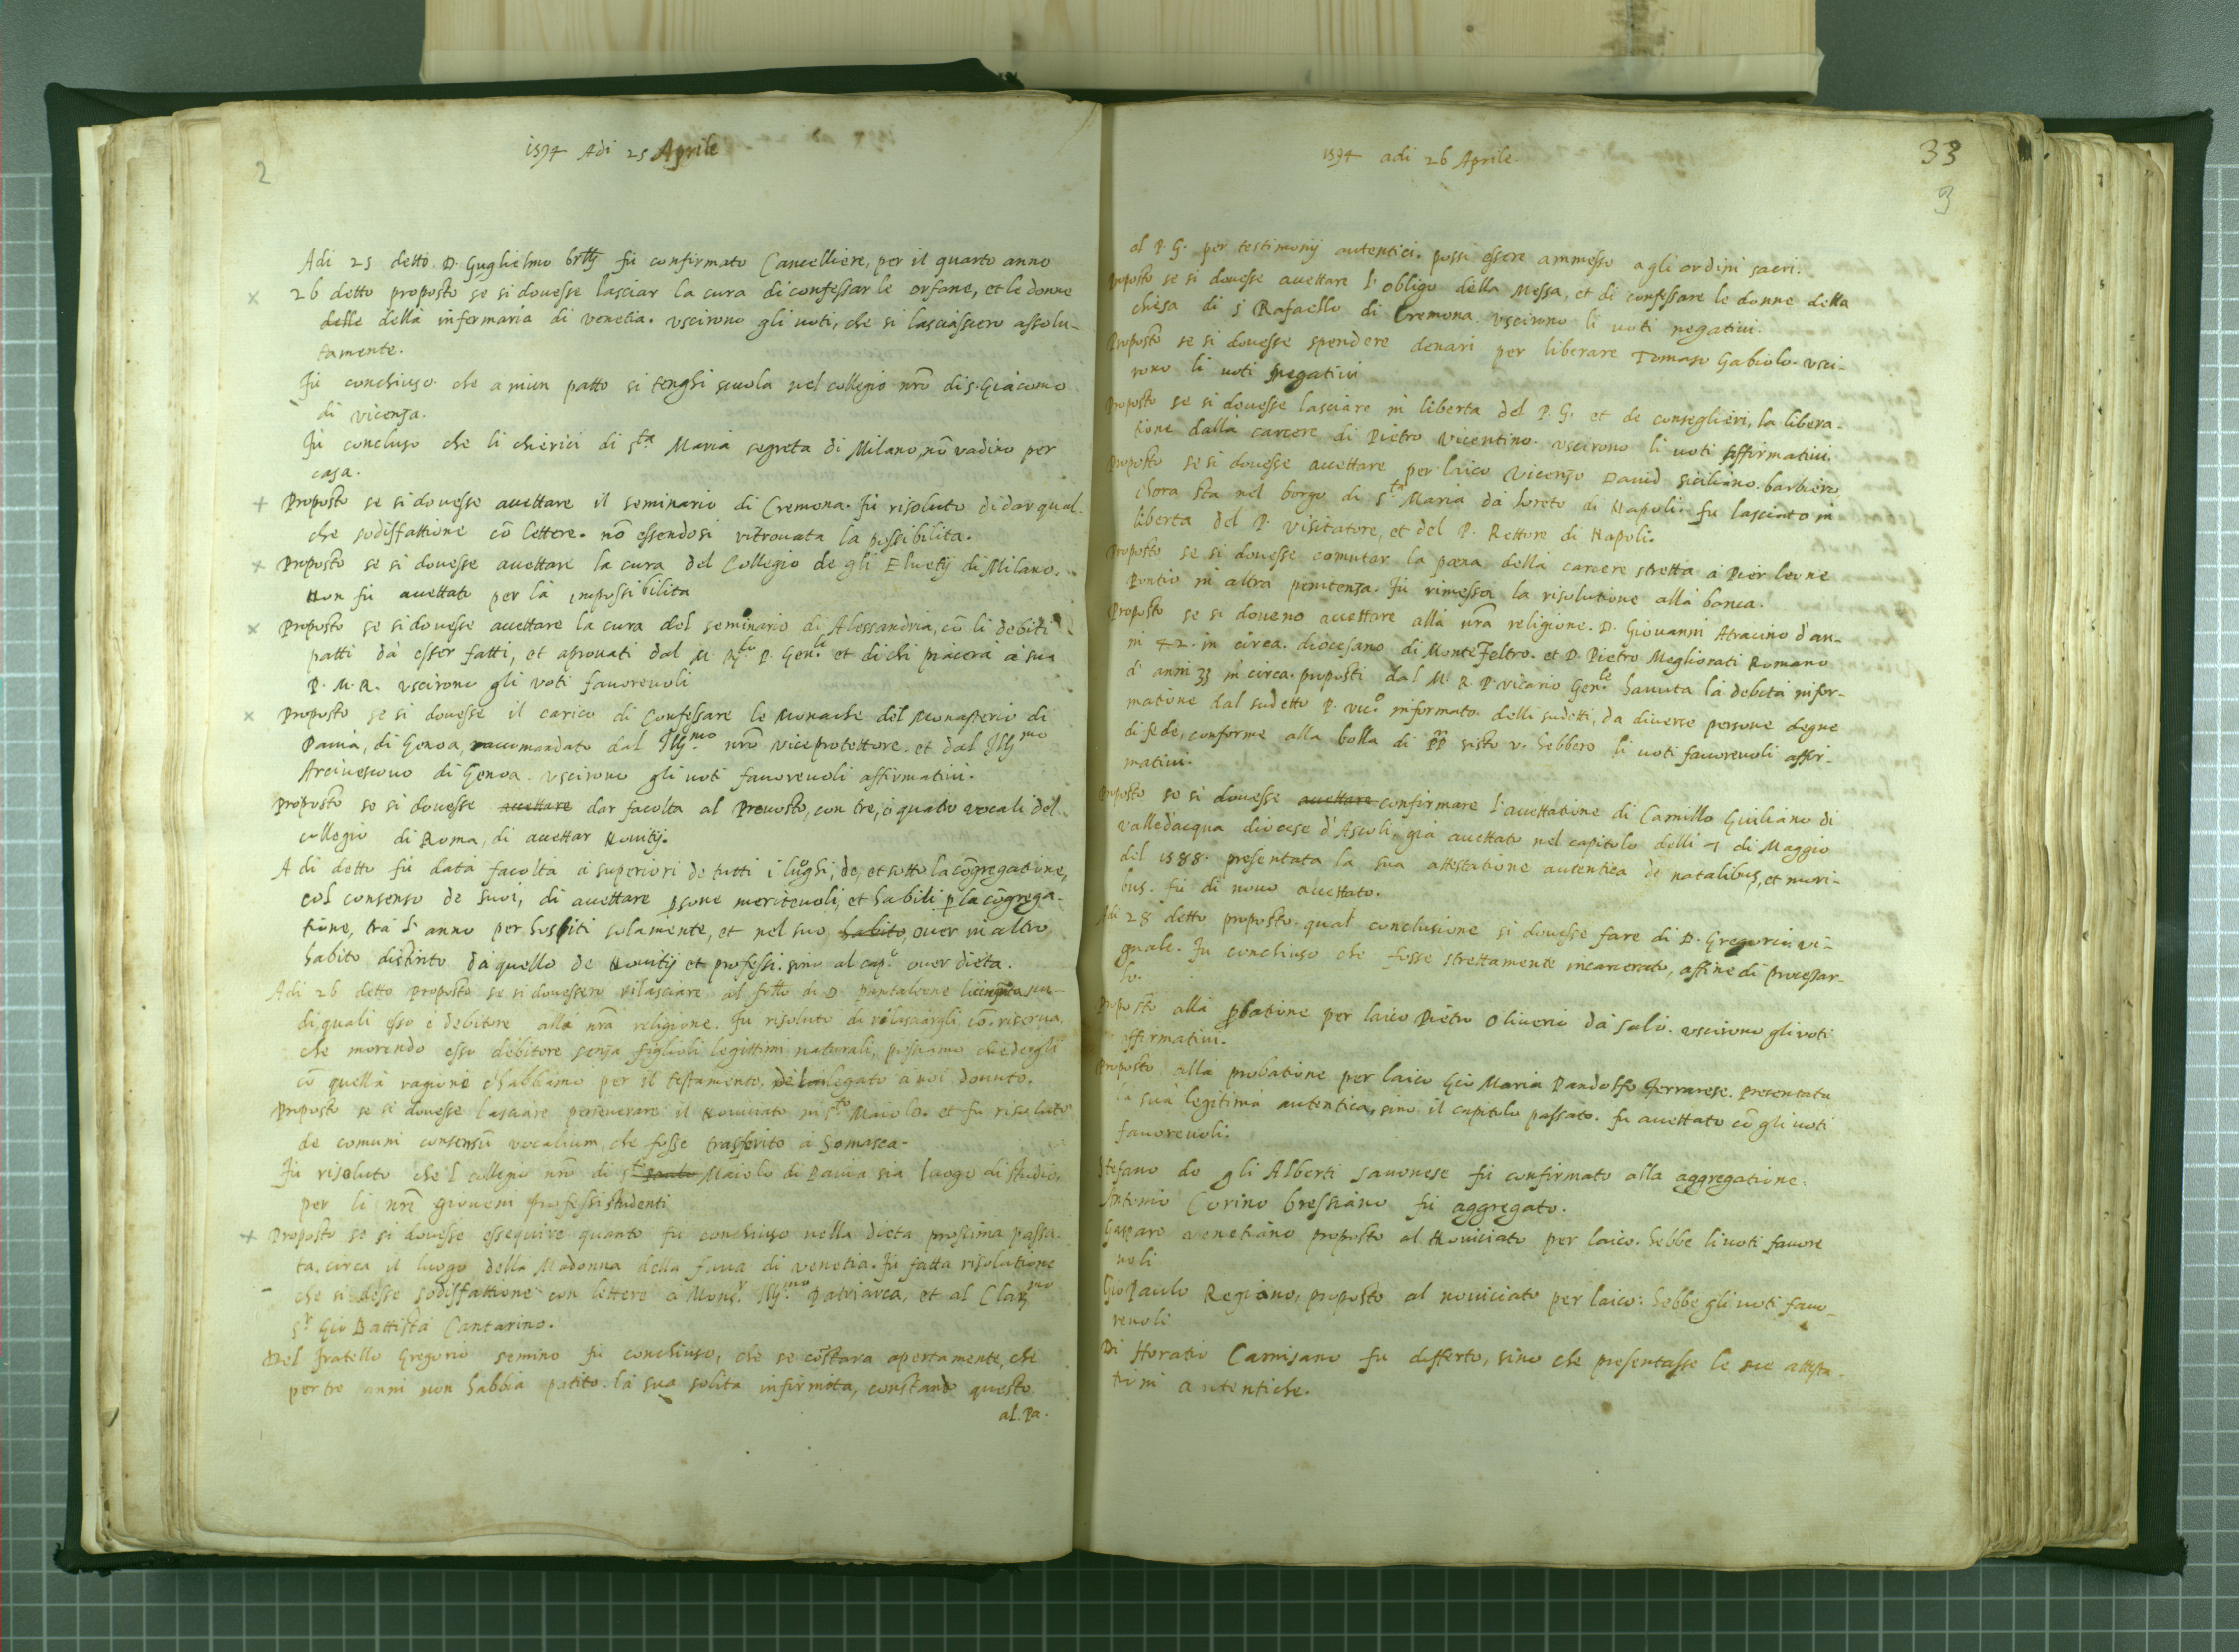 2
1594 Adi 25 Aprile
Adi 25 detto. D. Guglielmo fu confirmato Cancelliere, per il quarto anno
26 detto proposto se si douesse lasciar la cura di confessar le orfane, et le donne
delle della infermaria di Venetia. uscirono gli uoti, che si lasciassero assolu-
tamente.
Fu conchiuso che a niun patto si tenghi scuola nel collegio nrõ di S. Giacomo
di Vicenza.
Fu concluso che li chierici di Sta Maria segreta di Milano, nõ vadino per
casa.
Proposto se si douesse accettare il seminario di Cremona. Fu risoluto di dar qual-
che sodisfattione cõ lettere. nõ essendosi ritrouata la possibilita.
Proposto se si douesse accettare la cura del Collegio de gli Eluetij di Milano.
Non fu accettato per la impossibilita
Proposto se si douesse accettare la cura del seminario di Alessandria, cõ li debiti
patti da esser fatti, et aprouati dal M. Rdo P. Genle et di chi piacera à sua
P. M. R. uscirono gli voti fauoreuoli
Proposto se si douesse il carico di Confessare le Monache del Monasterio di
Pauia, di Genoa, raccomandato dal Illmo nrõ viceprotettore. et dal Illmo
Arciuescouo di Genoa. uscirono gli uoti fauoreuoli affirmatiui.
Proposto se si douesse accettare dar facolta al Preuosto, con tre, ò quatro vocali del
collegio di Roma, di accettar Nouitij.
A di detto fu data facolta a superiori de tutti i luoghi, de, et sotto la cõgregatione,
col consenso de suoi, di accettare psone meriteuoli, et habili p la cõgrega-
tione, tra l'anno per hospiti solamente, et nel suo habito, ouer in altro
habito distinto da quello de Nouitij et professi. sino al capo. ouer dieta.
Adi 26 detto Proposto se si douessero rilasciare al frllo di D. Pantaleone scu-
di, quali esso è debitore alla nrã religione. Fu risoluto di rilasciargli, cõ riserua,
che morendo esso debitore senza figlioli legittimi naturali, possiamo chiedergli
cõ quella ragione c'habbiamo per il testamento, legato à noi douuto.
Proposto se si douesse lasciare perseuerare il Nouiciato in Sto Maiolo. et fu risoluto
de comuni consensũ vocalium, che fosse trasferito à Somasca.
Fu risoluto che l collegio nrõ di Sto Maiolo di Pauia sia luogo di studio,
per li nrĩ gioueni professi studenti
Proposto se si douesse essequire quanto fu conchiuso nella dieta prossima passa-
ta, circa il luogo della Madonna della faua di Venetia. Fu fatta risolutione
che si desse sodisfattione con lettere a Monsr Illmo Patriarca, et al Clarmo
Sr Gio Battista Cantarino.
Del Fratello Gregorio semino fu conchiuso, che se cõstara apertamente, che
per tre anni non habbia patito la sua solita infirmita, constando questo
al Pa.
33
3
1594 adi 26 Aprile.
al P. G. per testimonij autentici. possi essere ammesso agli ordini sacri.
Proposto se si douesse accettare l'obligo della Messa, et di confessare le donne della
chiesa di S Rafaello di Cremona. uscirono li uoti negatiui.
Proposto se si douesse spendere denari per liberare Tomaso Gabiolo. vsci-
rono li uoti negatiui
Proposto se si douesse lasciare in liberta del P. G. et de conseglieri, la libera-
tione dalla carcere di Pietro Vicentino. uscirono li uoti affirmatiui.
Proposto se si douesse accettare per laico Vicenzo Dauid siciliano. barbiero
c'hora sta nel borgo di Sta Maria da loreto di Napoli. fu lasciato in
liberta del P. Visitatore, et del P. Rettore di Napoli.
Proposto se si douesse comutar la pœna della carcere stretta à Pier leone
Pontio in altra penitenza. Fu rimessa la risolutione alla banca.
Proposto se si doueno accettare alla nrã religione. D. Giouanni Atracino d'an-
ni 42. in circa. diocesano di Monte Feltro. et D. Pietro Meglionati Romano
d'anni 33 in circa. proposti dal M. R. P. vicario Genle hauuta la debita infor-
matione dal sudetto P. vico informato. delli sudetti, da diuerse persone degne
di fede, conforme alla bolla di PP sisto v. hebbero li uoti fauoreuoli affir-
matiui.
Proposto se si douesse accettare confirmare l'accettatione di Camillo Giuliano di
Valledacqua diocese d'Ascoli, già accettato nel capitolo delli di Maggio
del 1588. presentata la sua attestatione autentica de natalibus, et mori-
bus. fu di nouo accettato.
Adi 28 detto proposto. qual conclusione si douesse fare di D. Gregorio vi-
gnale. Fu conchiuso che fosse strettamente incarcerato, affine di processar-
lo.
Proposto alla pbatione per laico Pietro Oliuerio da Salò. uscirono gli voti
affirmatiui.
Proposto alla probatione per laico Gio Maria Pandolfo Ferrarese. presentata
la sua legitima autentica, sino il capitolo passato. fu accettato cõ gli uoti
fauoreuoli.
Stefano de gli Alberti sauonese fu confirmato alla aggregatione.
Antonio Corino bressiano fu aggregato.
Gasparo venetiano proposto al Nouiciato per laico. hebbe li uoti fauore
uoli
Gio Paulo Regiano, proposto al nouiciato per laico: hebbe gli uoti fauo-
reuoli
Di Horatio Carnisano fu differto, sino che presentasse le sue attesta-
tioni autentiche.